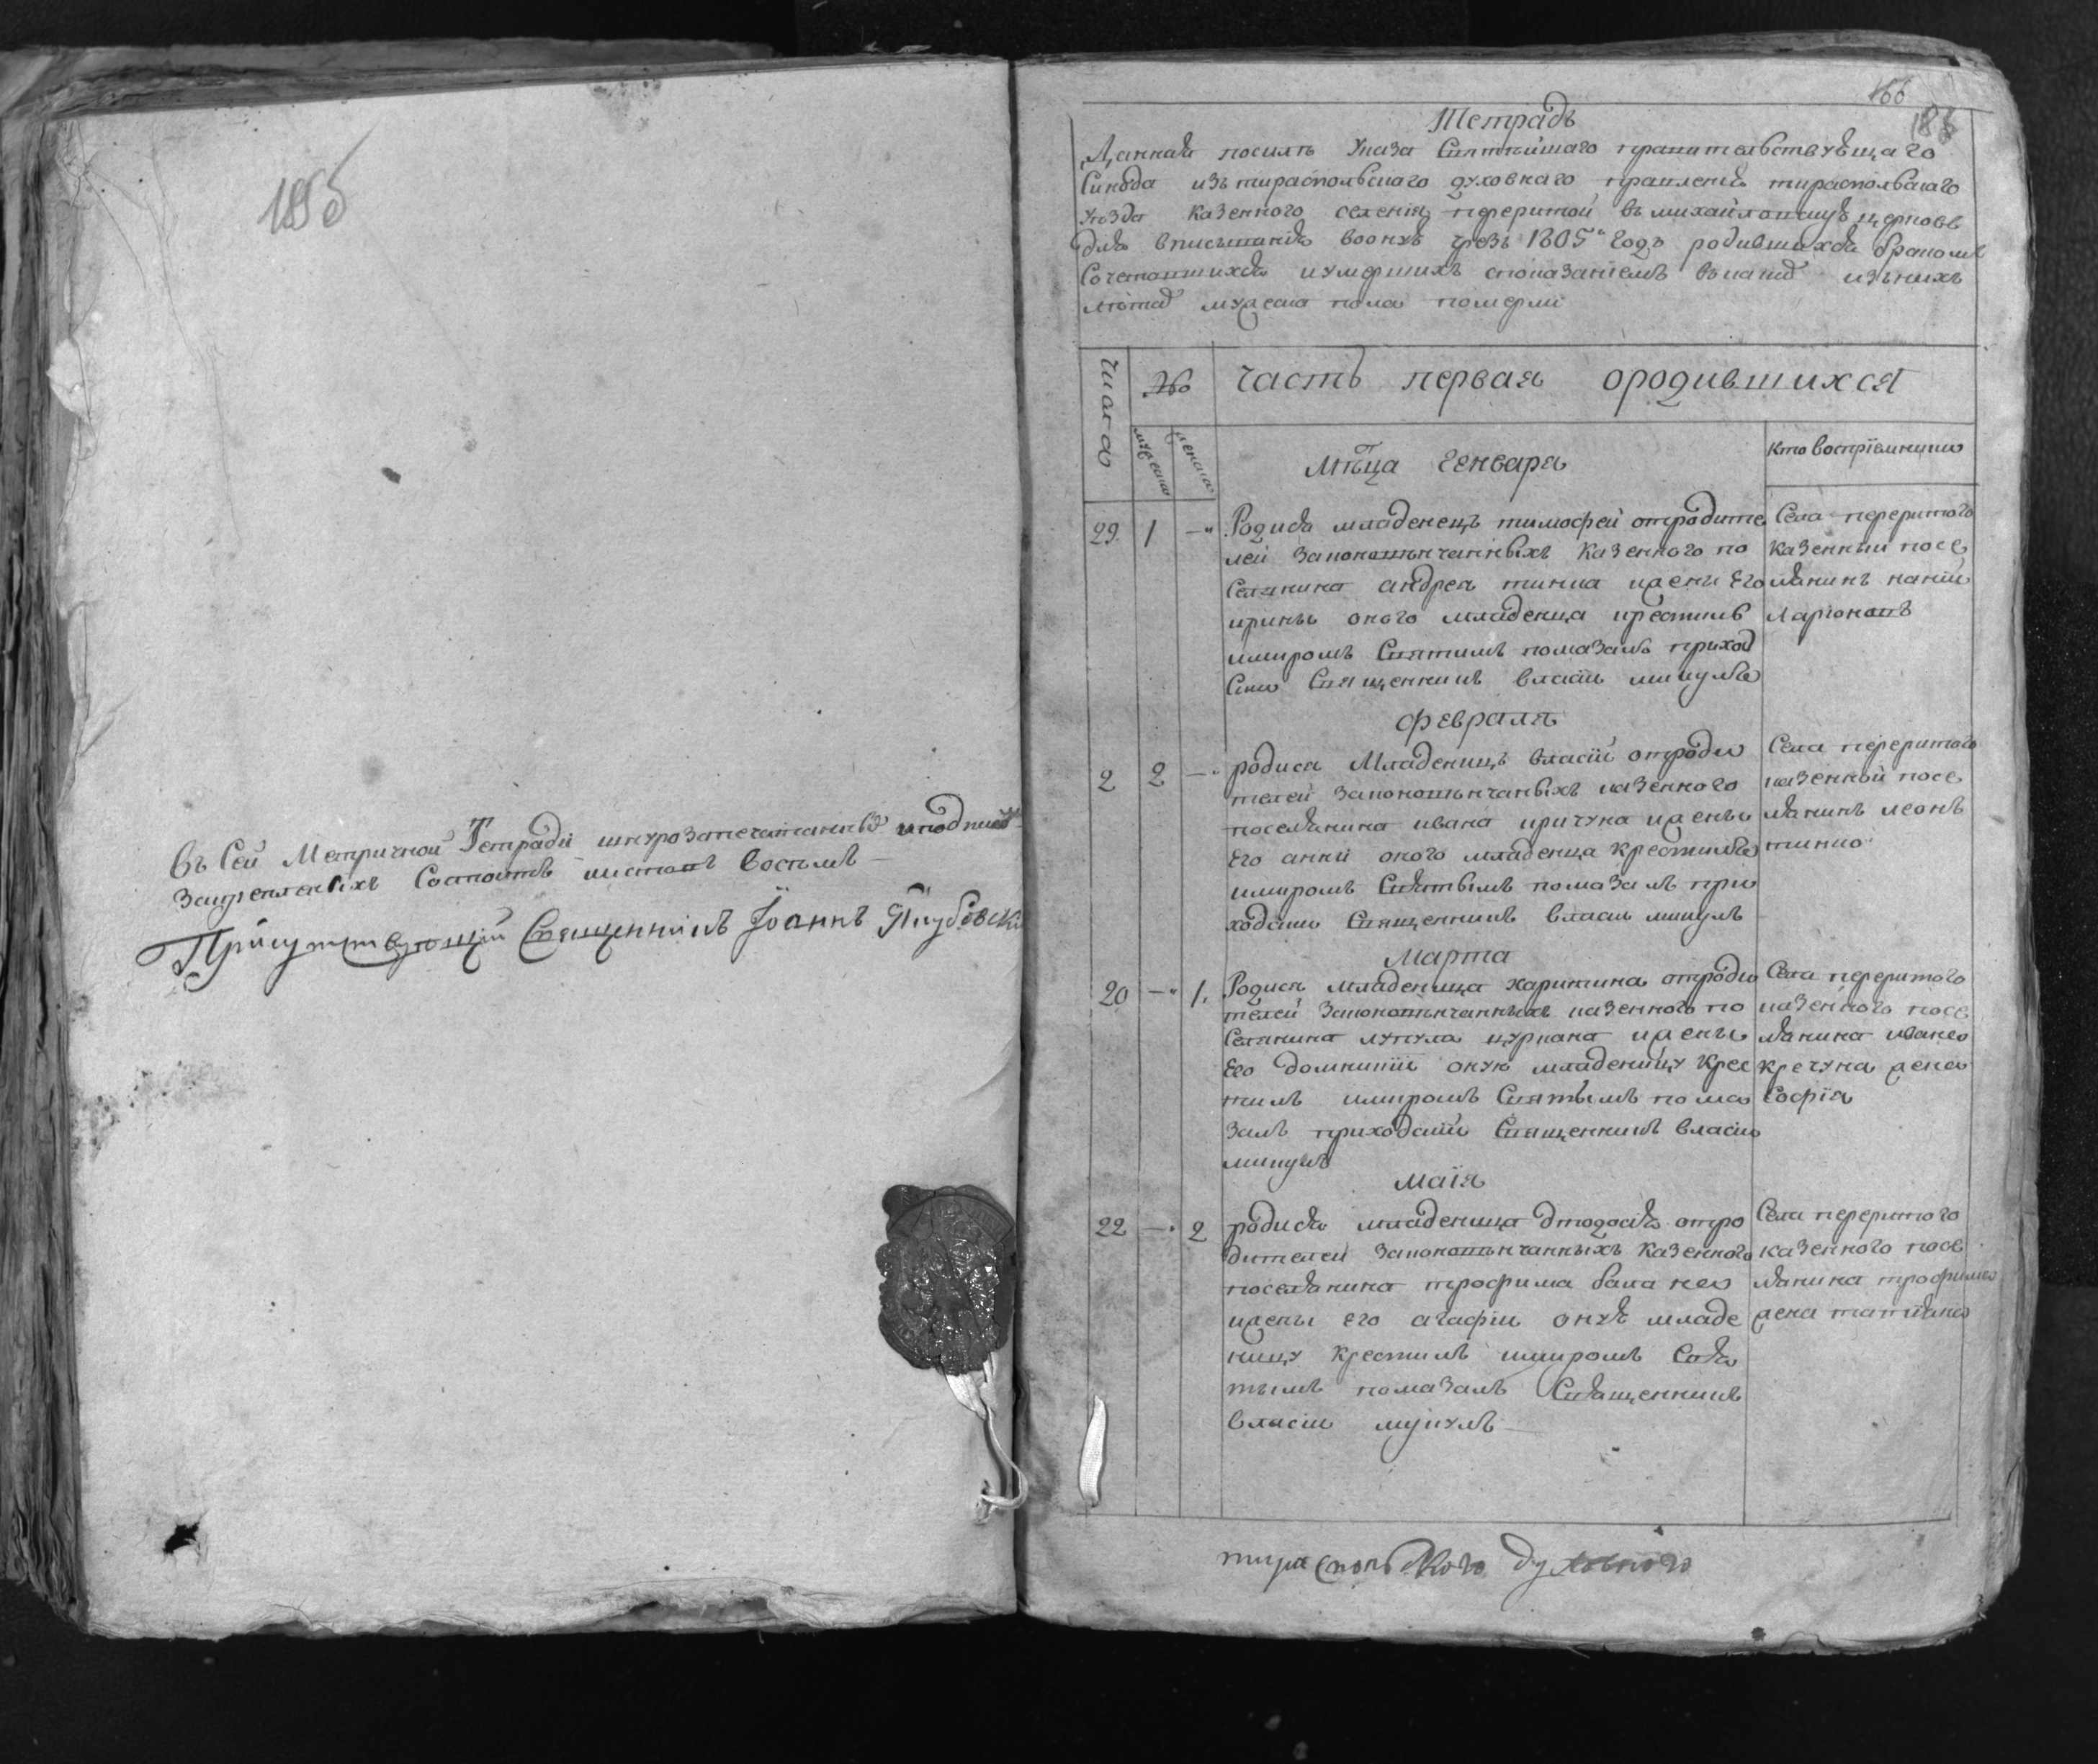 185б
Въ Сей Метричной Тетради шнурозапечатанных и подписо
закрепленныхъ Состоитъ листовъ восемъ
Присутствующій Священникъ Іоаннъ
166
186
Тетрадь
Данная посилѣ Указа Святѣйшаго правительствующаго
Синода изъ тираспольскаго духовнаго правленія тираспольскаго
уезда казенного селения переритой въ михайловскую церковь
для вписыванія вооную чрезъ 1805й годъ родившихся бракомъ
Сочетавшихся иумершихъ спаказаніемъ вкакие изъних
лѣта мужеска пола померли
числа
№
часть первая ородившихся
мужеска
женска
мѣца генваря
кто воспріемники
29. 1 —" Родися младенецъ тимофей отродите
лей законовѣнчанныхъ казенного по
Селянина андрея жены Его
ирины оного младенца крестилъ
имиромъ Святимъ помазалъ приход
Скій Священникъ власій микулъ
Села переритого
казенный посе
лянинъ
Ларіоновъ
февраля
2 2 —" родися Младенецъ власій отроди
телей законовѣнчаныхъ казенного
поселянина ивана кричуна жены
Его анни оного младенца крестилъ
имиромъ Святымъ помазалъ при
ходскій Священникъ власій микулъ
Села переритого
казенной посе
лянинъ леонъ
Марта
20 —" 1. Родися младеница харитина отроди
телей законовѣнчанныхъ казенного по
Селянина лупула цуркана жены
Его домникіи оную младеницу крес
тилъ имиромъ Святымъ пома
залъ приходскій Священникъ власій
микулъ
Села переритого
казенного посе
лянина ивана
кречуна жена
Софія
маія
22 —" 2 родися младеница отро
дителей законовѣнчанныхъ казенного
поселянина трофима
жены его агафіи оную младе
ницу крестилъ имиромъ Свя
тымъ помазалъ Священникъ
власій микулъ
Села переритого
казенного посе
лянина трофима
жена татіяна
тираспольского духовного